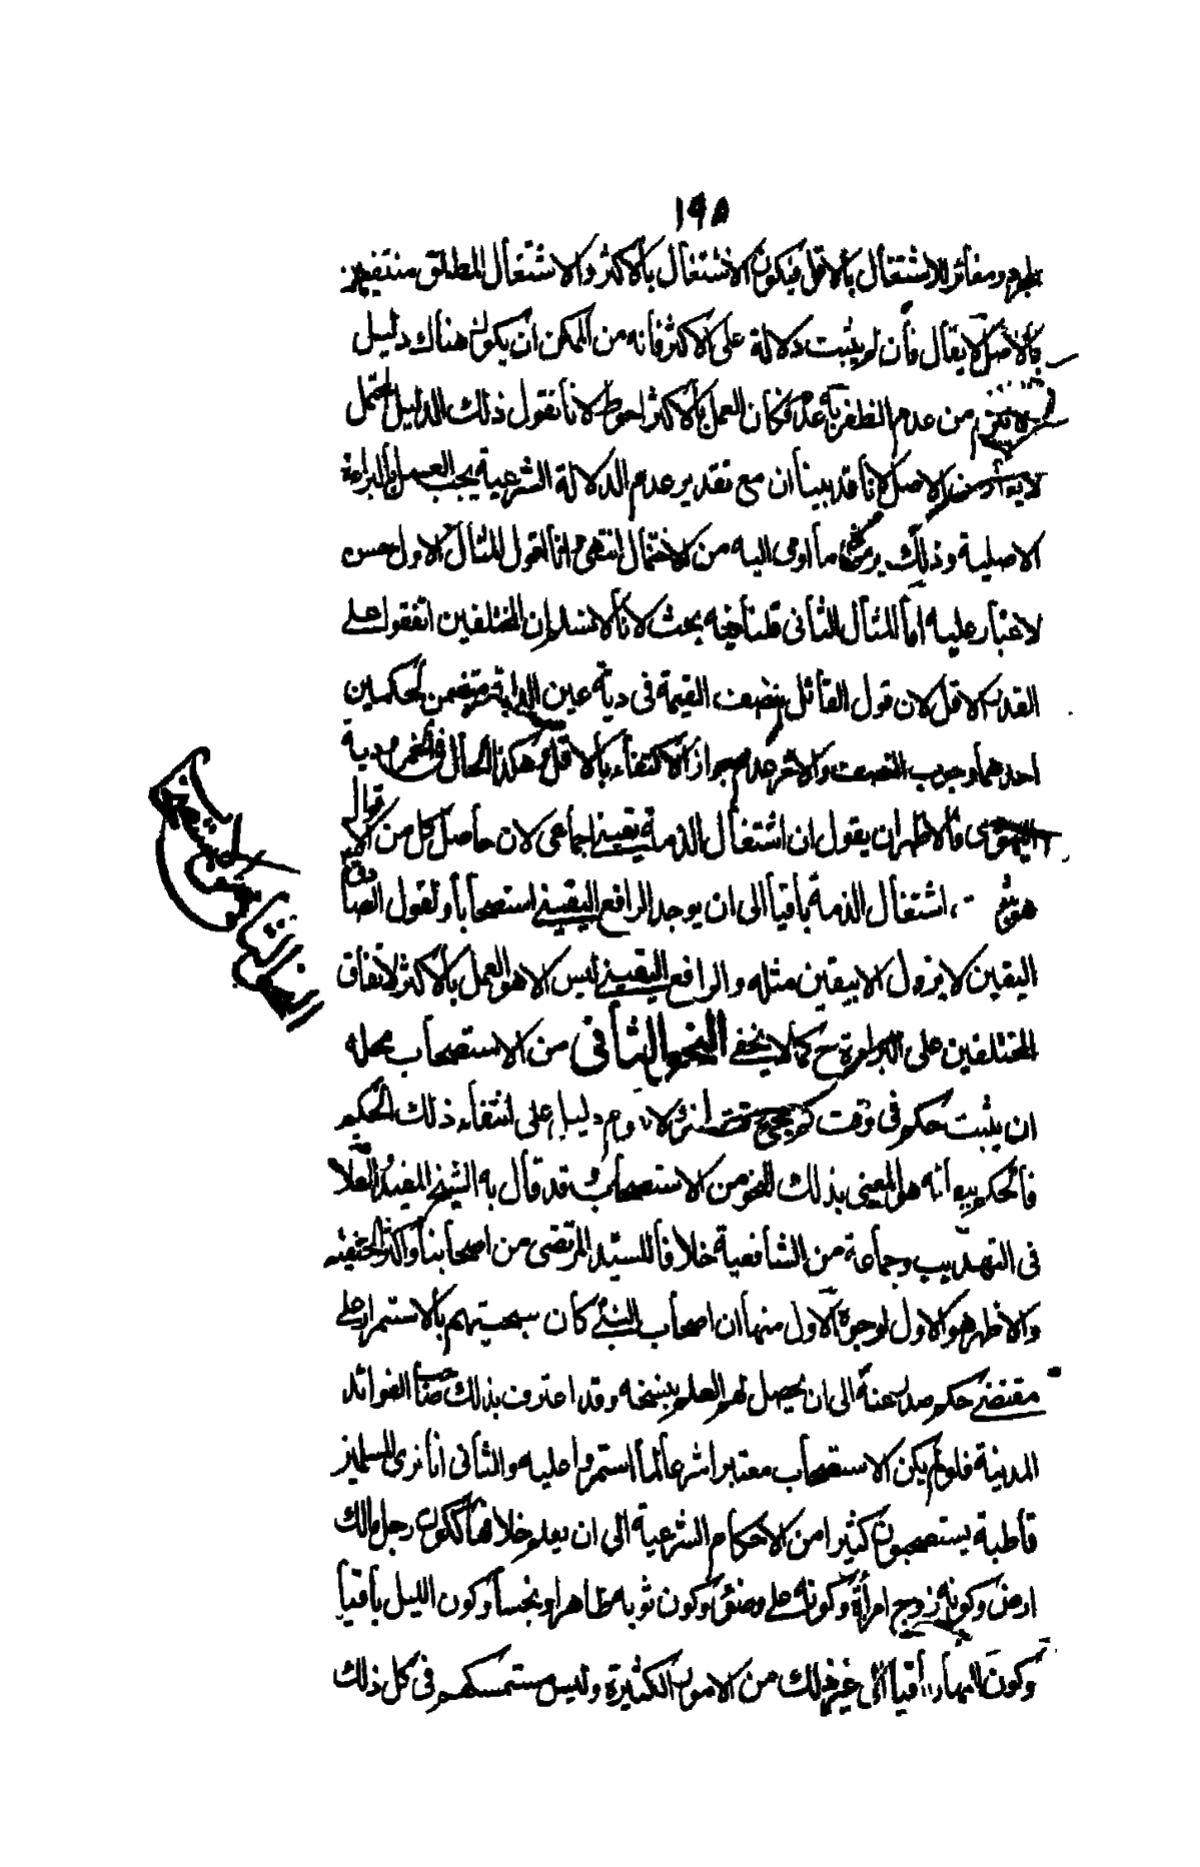 ١٩٨
ومغائر للاشتغال بالاقل فيكون الاشتغال بالاكثر والاشتغال المطلق منتفيين
بالاصل لا يقال فان لو يثبت دلالة على الاكثر فانه من الممكن ان يكون هناك دليل
من عدم الظفر به عدمه فكان العمل بالاكثر احوط لانا نقول ذلك الدليل المحتمل
الاصل لانا قد بينا ان مع تقدير عدم الدلالة الشرعية يجب العمل بالبراءة
الاصلية وذلك ما اومى اليه من الاحتمال انتهى انا اقول للمثال الاول حسن
لا غبار عليه اما للمثال الثانى قلنا فيه بحث لانا لا نسلم ان المختلفين اتفقوا على
القدر الاقل لان قول القائل بنصف القيمة فى دية عين الدابة متضمن لحكمين
احدهما وجوب النصف والاخر عدم جواز الاكتفاء بالاقل وهكذا الحال فى دية
فالاظهر ان يقول ان اشتغال الذمة يقينى اجماعى لان حاصل كل من الاقوال
هو اشتغال الذمة باقيا الى ان يوجد الرافع اليقينى استصحابا ولقول الصادق
اليقين لا يزول الا بيقين مثله والرافع اليقينى ليس الا هو العمل بالاكثر لاتفاق
المختلفين على ح كما لا يخفى النحو الثانى من الاستصحاب محله
النحو الثانى
ان يثبت حكم فى وقت دليل على انتفاء ذلك الحكم
فالحكم انه هو المعنى بذلك النحو من الاستصحاب قد قال به الشيخ المفيد والعلامة
فى التهذيب وجماعة من الشافعية خلافا للسيد المرتضى من اصحابنا واكثر الحنفية
والاظهر هو الاول لوجوه الاول منها ان اصحاب النبى كان سجيتهم بالاستمرار على
مقتضى حكم صدر عنه الى ان يحصل لهم العلم بنسخه وقد اعترف بذلك صاحب الفوائد
المدنية فلو لم يكن الاستصحاب معتبرا شرعا لما استمروا عليه والثانى انا نرى المسلمين
قاطبة يستصحبون كثيرا من الاحكام الشرعية الى ان يعلم خلافها ككون رجل مالك
ارض وكونه زوج امرأة وكونه على وضوء وكون ثوبه طاهرا ونجسا وكون الليل باقيا
وكون النهار باقيا الى غير ذلك من الامور الكثيرة وليس مستمسكهم فى كل ذلك